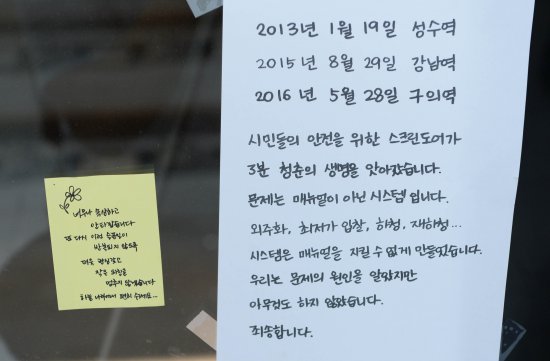 2013년 1월 19일 성수역
2015년 8월 29일 강남역
2016년 5월 28일 구의역
시민들의 안전을 위한 스크린도어가
3분 청춘의 생명을 앗아갔습니다.
문제는 매뉴얼이 아닌 시스템 입니다.
외주화, 최저가 입찰, 하청, 재하청...
시스템은 매뉴얼을 지킬 수 없게 만들었습니다.
우리는 문제의 원인을 알았지만
아무것도 하지 않았습니다.
죄송합니다.
너무나 속상하고
안타깝습니다
다시 이런 슬픔이
반복되지 않도록
더욱 관심갖고
작은 외침을
멈추지 않겠습니다
하늘 나라에서 편히 쉬세요...